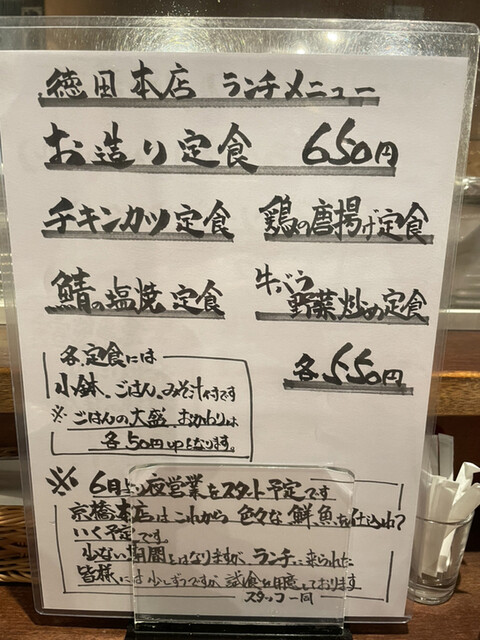 徳田本店 ランチメニュー
お造り定食 650円
チキンカツ定食 鶏の唐揚げ定食
鯖の塩焼定食
牛バラ
野菜炒め定食
各550円
各定食には
小鉢、ごはん、みそ汁付です
※ごはんの大盛 おかわりは
各50円upとなります。
※6月より夜営業をスタート予定です
京橋本店はこれから色々な鮮魚を仕込れて
いく予定です。
少ない期間とはなりますが、ランチに来られた
皆様には少しずつですが、試食を用意しております
スタッフ一同